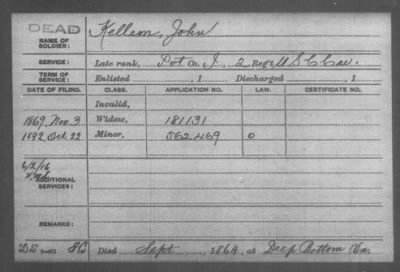 DEAD
NAME OF SOLDIER: Kellem, John
SERVICE: Late rank, Pvt Co. I, 2 Reg't U S C Cav.
TERM OF SERVICE: Enlisted , 1 Discharged , 1
DATE OF FILING. CLASS. APPLICATION NO. LAW. CERTIFICATE NO.
Invalid,
1869, Nov. 3 Widow, 181131
1892, Oct. 22 Minor, 562469 O
6/2/16
ADDITIONAL SERVICES:
REMARKS:
Died Sept , 1864, at Deep Bottom Va.